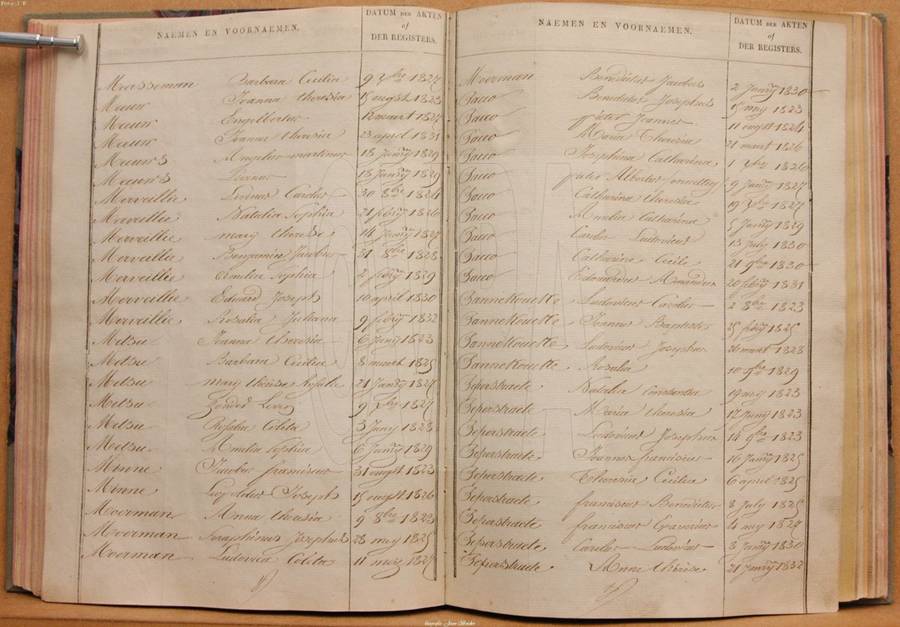 NAEMEN EN VOORNAEMEN.
DATUM DER AKTEN
of
DER REGISTERS.
Meesseman Barbara Cecilia 9 xbre 1827
Meeuw Joanna theresia 15 augst 1823
Meeuw Engelbertus 12 maart 1827
Meeuw Joanne theresia 23 april 1831
Meeuws Angelus martinus 18 Janry 1829
Meeuws 18 Janry 1829
Merveillie Livinus Carolus 30 8bre 1824
Merveillie Natalia Sophia 21 febry 1826
Merveillie mary therese 14 Janry 1827
Merveillie Benjaminus Jacobus 31 8bre 1828
Merveillie Amelia Sophia 2 febry 1829
Merveillie Eduard Joseph 10 april 1830
Merveillie Rosalia Juliana 9 febry 1832
Metsu Joanna theresia 6 Juny 1823
Metsu Barbara Cecilia 8 maart 1825
Metsu mary therese Rosalie 21 Janry 1827
Metsu 9 xbre 1827
Metsu Rosalia Colita 3 Juny 1828
Metsu Amelia Sophia 6 Janry 1829
Minne Jacobus franciscus 31 augst 1823
Minne Leopoldus Joseph 15 augst 1826
Moerman Anna theresia 9 8bre 1823
Moerman Seraphinus Josephus 28 mey 1825
Moerman Ludovica Colita 11 mey 1827
NAEMEN EN VOORNAEMEN.
DATUM DER AKTEN
of
DER REGISTERS.
Moerman Benedictus Jacobus 2 Janry 1830
Pacco Benedictus Josephus 15 mey 1823
Pacco pieter Joannes 11 augst 1824
Pacco Maria Theresia 21 maart 1826
Pacco Josephina Catharina 1 xbre 1826
Pacco pieter Albertus 9 Janry 1827
Pacco Catharina theresia 19 xbre 1827
Pacco Amelia Catharina 5 Janry 1829
Pacco Carolus Ludovicus 13 July 1830
Pacco Catharina Cecilia 21 9bre 1830
Pacco Edouardus Amandus 20 febry 1831
Pannekoucke Ludovicus Carolus 2 8bre 1823
Pannekoucke Joannes Baptiste 25 febry 1825
Pannekoucke Ludovicus Josephus 26 maart 1828
Pannekoucke Rosalia 10 9bre 1829
Peperstraete Natalia Constantia 19 mey 1823
Peperstraete Maria theresia 17 Juny 1823
Peperstraete Ludovicus Josephus 14 9bre 1823
Peperstraete Joannes franciscus 16 Janry 1825
Peperstraete Theresia Cecilia 6 april 1825
Peperstraete franciscus Benedictus 8 July 1825
Peperstraete franciscus Xaverius 4 mey 1827
Peperstraete Carolus Ludovicus 3 Janry 1830
Peperstraete Anne therese 21 Janry 1832